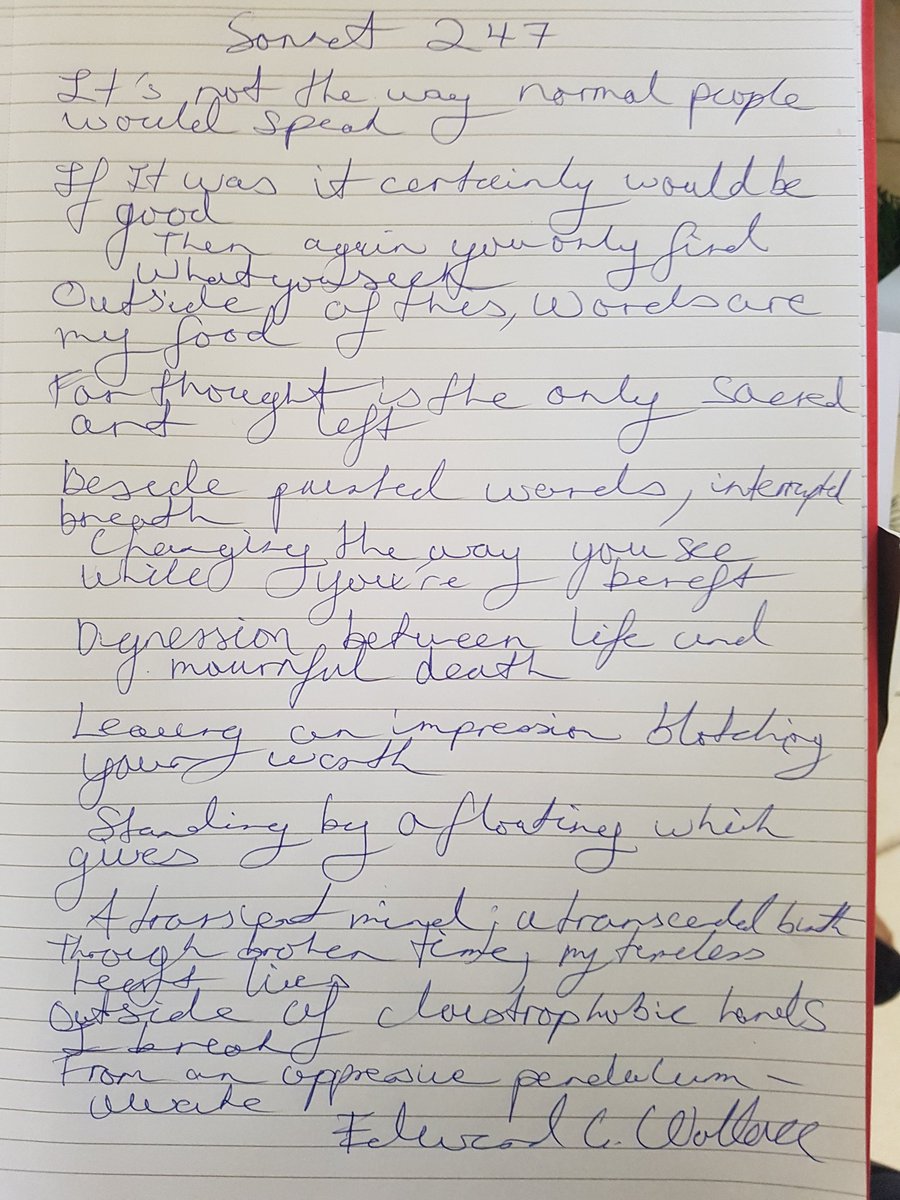 Sonnet 247
It's not the way normal people
would speak
If It was it certainly would be
good
Then again you only find
what you seek
Outside of this, Words are
my food
For thought is the only sacred
art left
Beside painted words, interrupted
breath
Changing the way you see
while you're bereft
Digression between life and
mournful death
Leaving an impression blotching
your worth
Standing by a floating which
gives
A transient mind; a transcedal birth
Through broken time, my timeless
heart lives
Outside of claustrophobic hands
I break
From an oppressive pendulum -
awake
Edward C. Wallace